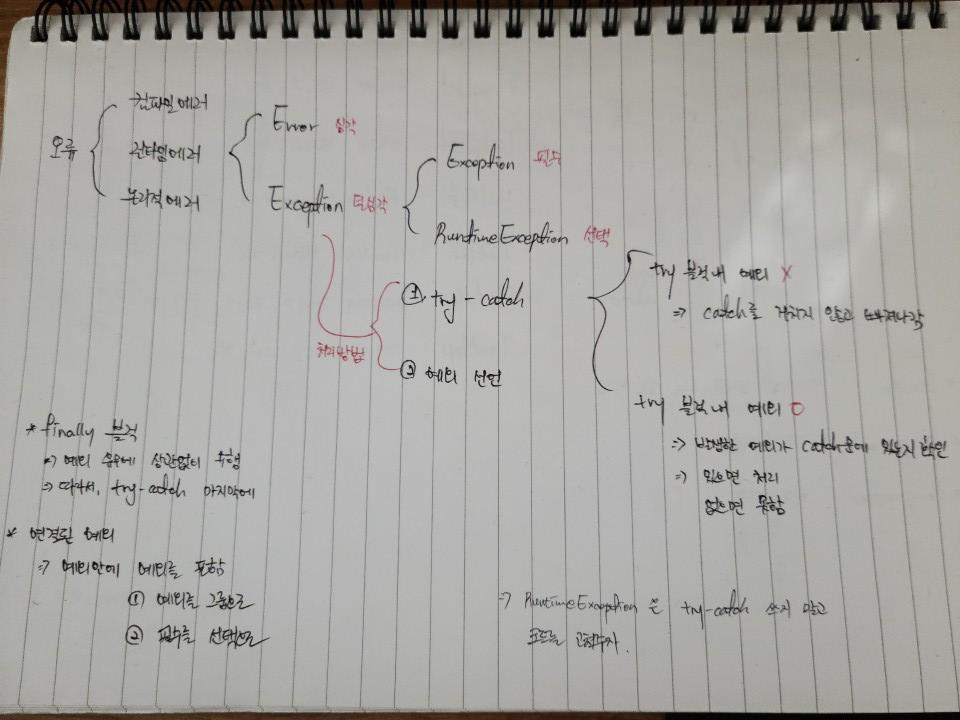 오류
컴파일에러
런타임에러
논리적에러
Error 심각
Exception 덜심각
Exception 필수
RuntimeException 선택
처리방법
① try-catch
② 예외 선언
try 블럭 내 예외 X
⇒ catch를 거치지 않고 빠져나감
try 블럭 내 예외 O
⇒ 발생한 예외가 catch문에 있는지 확인
⇒ 있으면 처리
없으면 못함
* finally 블럭
⇒ 예외 유무에 상관없이 수행
⇒ 따라서, try-catch 마지막에
* 연결된 예외
⇒ 예외안에 예외를 포함
① 예외를 그룹으로
② 필수를 선택으로
⇒ RuntimeException 은 try-catch 쓰지 말고
코드를 고쳐주자.